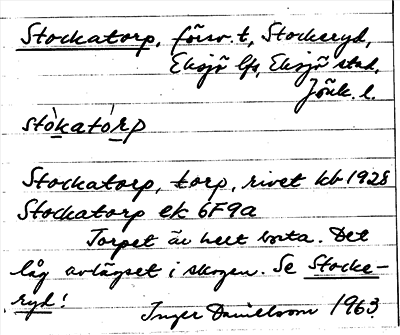 Stockatorp, försv. t, Stockeryd,
Eksjö lfs, Eksjö stad,
Jönk. l.
stòkatór̲p
Stockatorp, torp, rivet kb 1928
Stockatorp ek 6F9a
Torpet är helt borta. Det
låg avlägset i skogen. Se Stocke-
ryd!
Inger Danielsson 1963